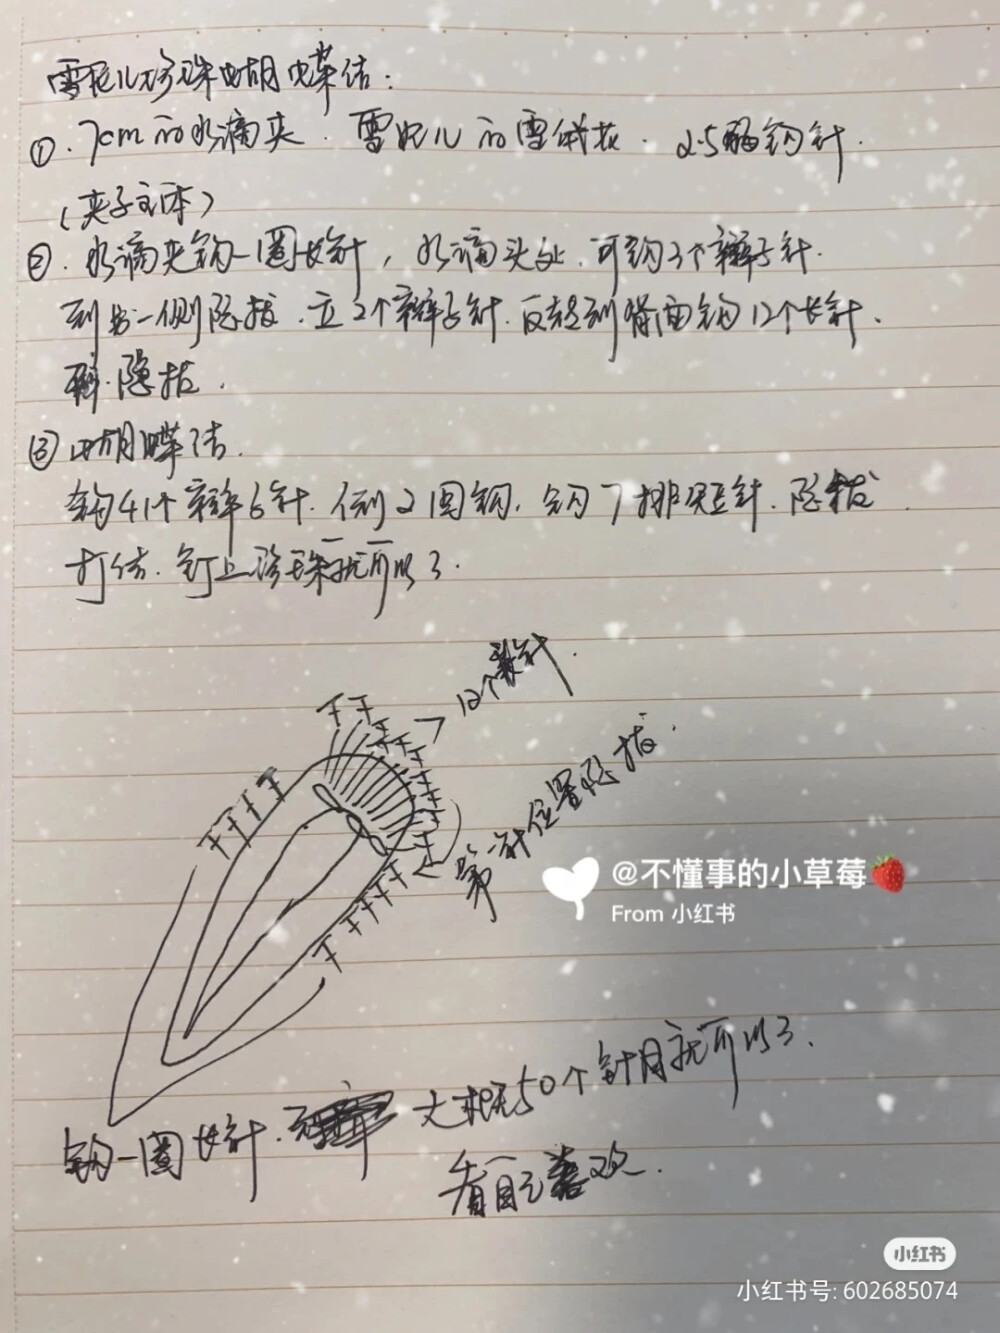 雪妃儿珍珠蝴蝶结：
①.7cm的水滴夹.雪妃儿的雪绒花.2.5的钩针.
（夹子主体）
②.水滴夹钩一圈长针，水滴头处.可钩3个辫子针.
到另一侧隐拔.立2个辫子针.反转到背面钩12个长针.
隐拔.
③蝴蝶结.
钩41个辫子针.侧2圆钩.钩7排短针.隐拔.
打结.钉上珍珠就可以了.
12个针.
第一针位置隐拔.
@不懂事的小草莓🍓
From 小红书
钩一圈长针.大概50个针目就可以了.
看自己喜欢.
小红书
小红书号: 602685074